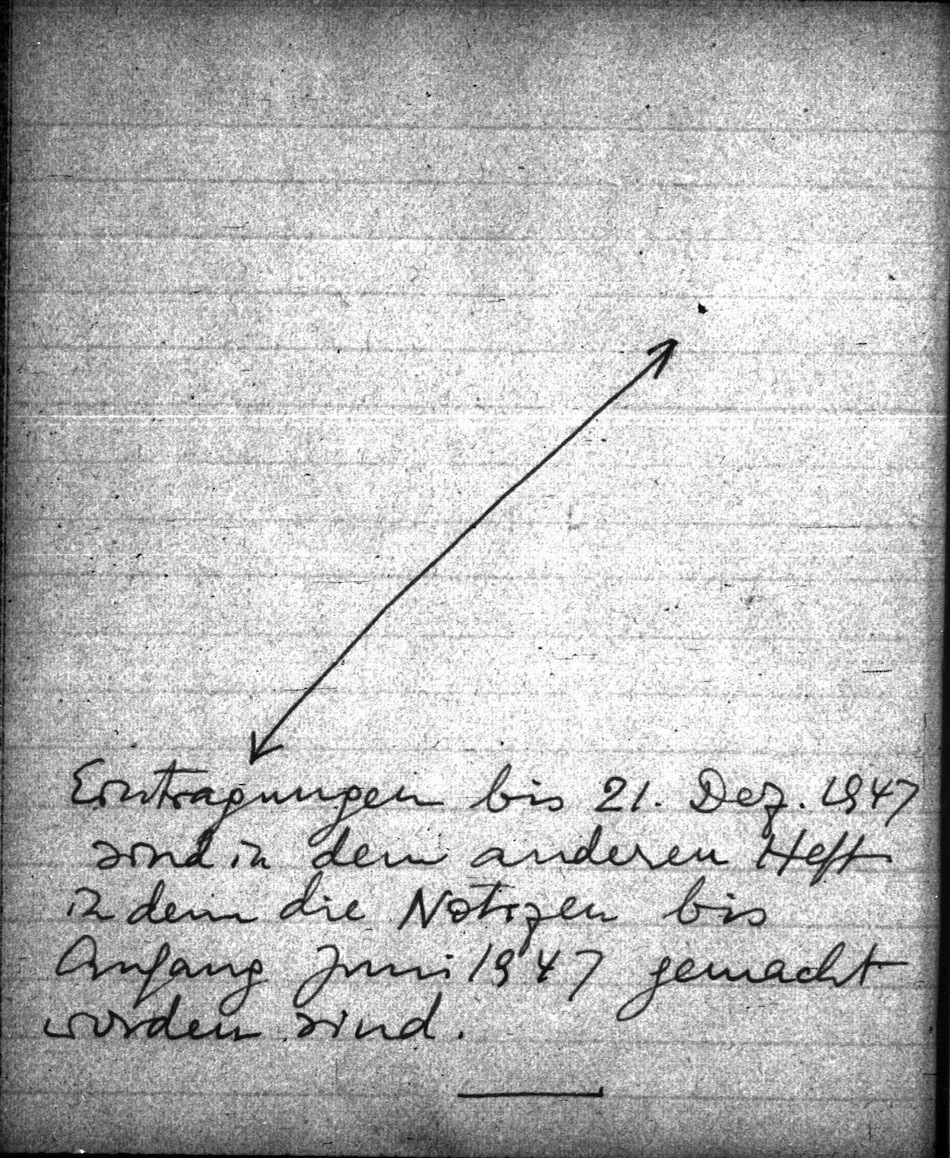 Eintragungen bis 21. Dez. 1947
sind in dem anderen Heft
in dem die Notizen bis
Anfang Juni 1947 gemacht
worden sind.